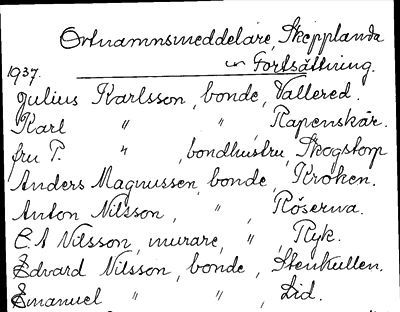 Ortnamnsmeddelare, Skepplanda
Fortsättning.
1937.
Julius Karlsson, bonde, Vallered.
Karl " " , Rapenskär.
fru P. " , bondhustru, Skogstorp
Anders Magnussen, bonde, Kroken.
Anton Nilsson, " , Röserna.
C. A Nilsson, murare, " , Ryk.
Edvard Nilsson, bonde, Stenkullen.
Emanuel " " , Lid.